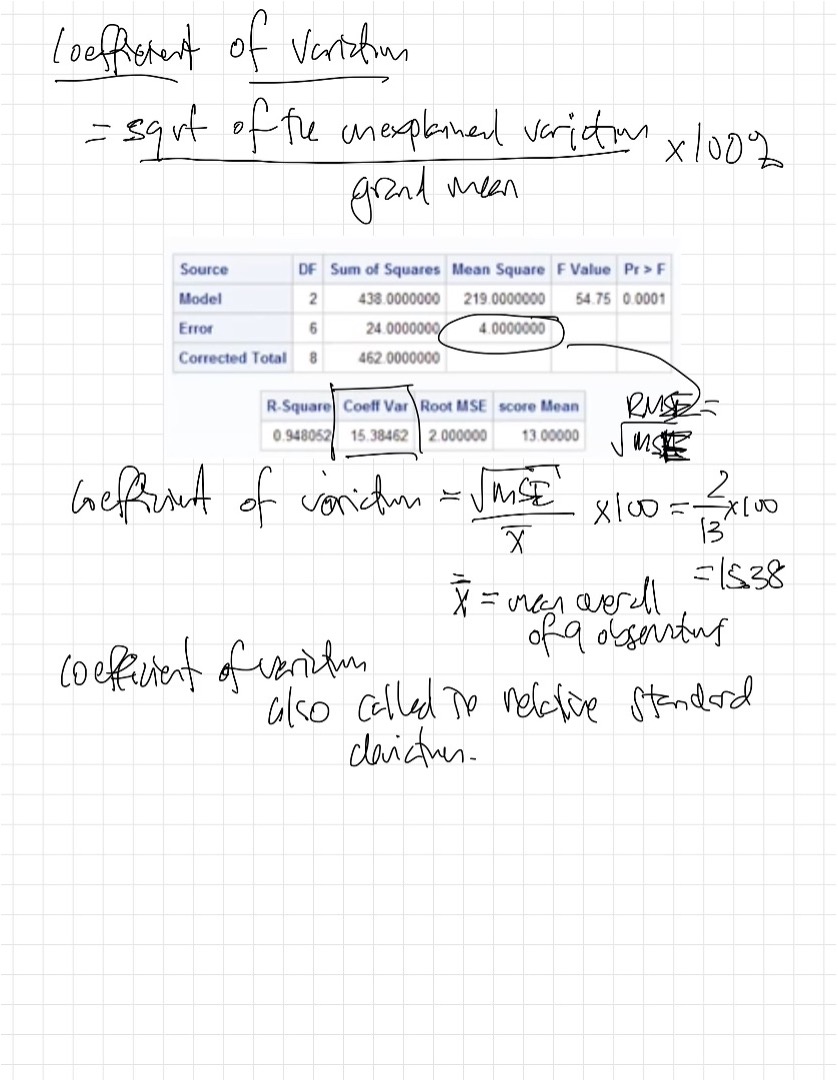 Coefficient of Variation
= sqrt of the unexplained variation x 100%
grand mean
Source DF Sum of Squares Mean Square F Value Pr > F
Model 2 438.0000000 219.0000000 54.75 0.0001
Error 6 24.0000000 4.0000000
Corrected Total 8 462.0000000
R-Square Coeff Var Root MSE score Mean
0.948052 15.38462 2.000000 13.00000
RMSE =
√MSE
Coefficient of variation = √MSE / x̄ x100 = 2/13 x100
= 15.38
x̿ = mean overall
of 9 observations
Coefficient of variation
also called the relative standard
deviation.